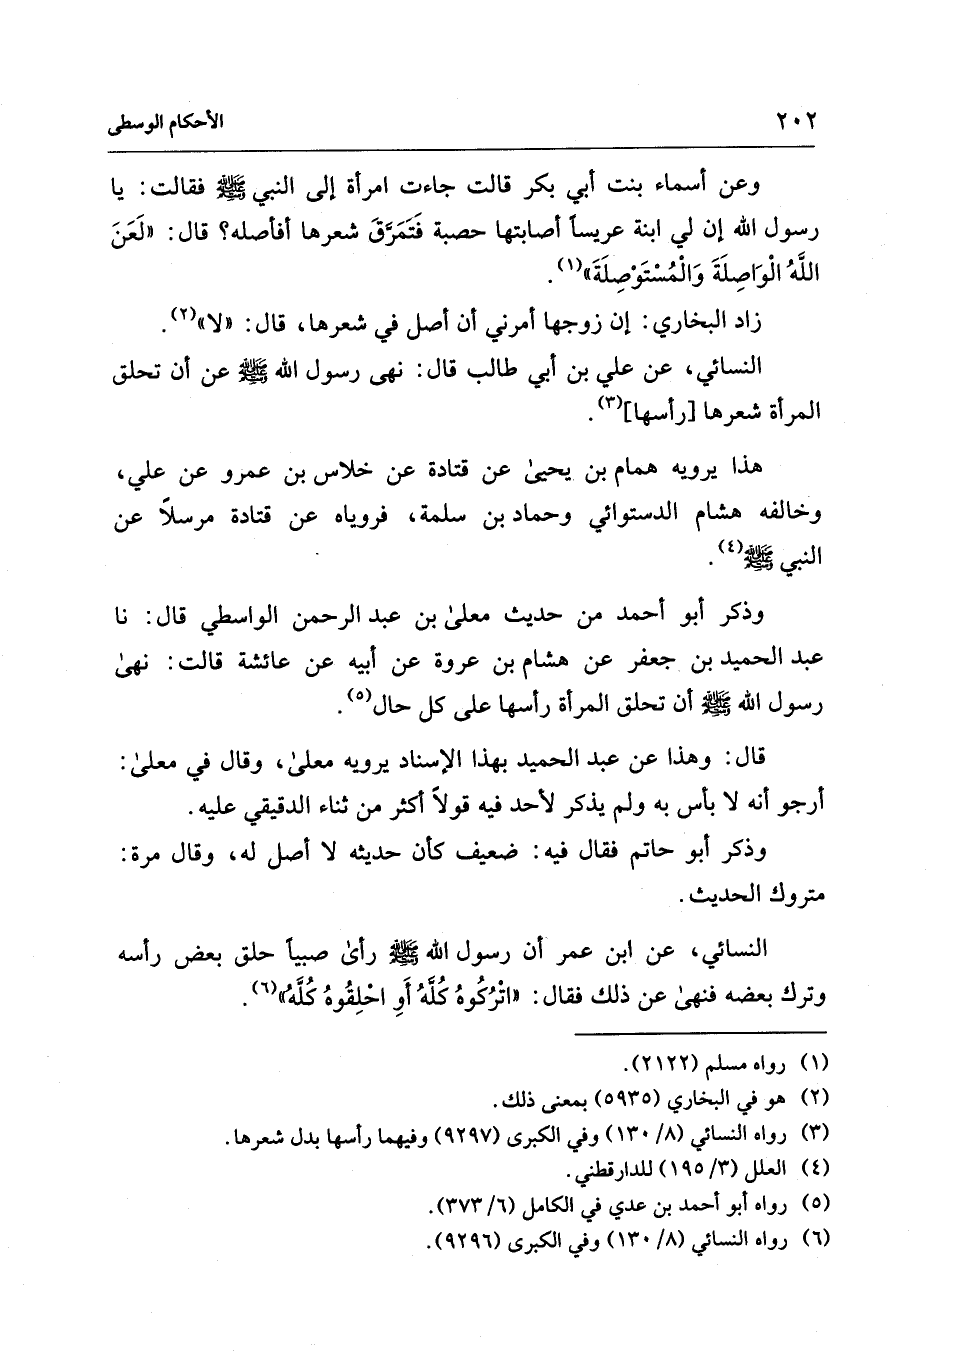 ٢٠٢ الأحكام الوسطى
وعن أسماء بنت أبي بكر قالت جاءت امرأة إلى النبي ﷺ فقالت: يا
رسول الله إن لي ابنة عريساً أصابتها حصبة فَتَمَرَّقَ شعرها أفأصله؟ قال: «لَعَنَ
اللَّهُ الْوَاصِلَةَ وَالْمُسْتَوْصِلَةَ»(١).
زاد البخاري: إن زوجها أمرني أن أصل في شعرها، قال: «لا»(٢).
النسائي، عن علي بن أبي طالب قال: نهى رسول الله ﷺ عن أن تحلق
المرأة شعرها [رأسها](٣).
هذا يرويه همام بن يحيىٰ عن قتادة عن خلاس بن عمرو عن علي،
وخالفه هشام الدستوائي وحماد بن سلمة، فروياه عن قتادة مرسلاً عن
النبي ﷺ(٤).
وذكر أبو أحمد من حديث معلىٰ بن عبد الرحمن الواسطي قال: نا
عبد الحميد بن جعفر عن هشام بن عروة عن أبيه عن عائشة قالت: نهىٰ
رسول الله ﷺ أن تحلق المرأة رأسها على كل حال(٥).
قال: وهذا عن عبد الحميد بهذا الإسناد يرويه معلىٰ، وقال في معلىٰ:
أرجو أنه لا بأس به ولم يذكر لأحد فيه قولاً أكثر من ثناء الدقيقي عليه.
وذكر أبو حاتم فقال فيه: ضعيف كأن حديثه لا أصل له، وقال مرة:
متروك الحديث.
النسائي، عن ابن عمر أن رسول الله ﷺ رأىٰ صبياً حلق بعض رأسه
وترك بعضه فنهىٰ عن ذلك فقال: «اتْرُكُوهُ كُلَّهُ أَوِ احْلِقُوهُ كُلَّهُ»(٦).
(١) رواه مسلم (٢١٢٢).
(٢) هو في البخاري (٥٩٣٥) بمعنى ذلك.
(٣) رواه النسائي (٨/ ١٣٠) وفي الكبرى (٩٢٩٧) وفيهما رأسها بدل شعرها.
(٤) العلل (٣/ ١٩٥) للدارقطني.
(٥) رواه أبو أحمد بن عدي في الكامل (٦/ ٣٧٣).
(٦) رواه النسائي (٨/ ١٣٠) وفي الكبرى (٩٢٩٦).